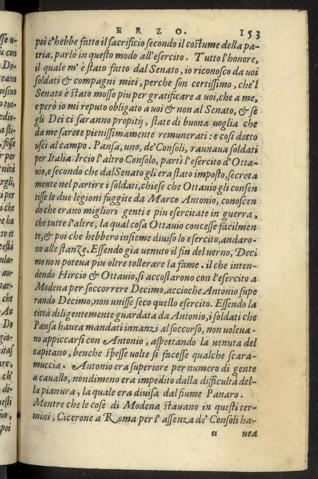 ERZO. 153
poi c'hebbe fatto il sacrificio secondo il costume della pa-
tria, parlò in questo modo all'esercito. Tutto l'honore,
il quale m'è stato fatto dal Senato, io riconosco da uoi
soldati & compagni miei, perche son certissimo, che'l
Senato è stato mosso piu per gratificare a uoi, che a me,
e però io mi reputo obligato a uoi & non al Senato, & se
gli Dei ci saranno propitij, state di buona uoglia che
da me sarete pienissimamente remunerati: e cosi detto
uscì al campo. Pansa, uno, de' Consoli, raunaua soldati
per Italia. Ircio l'altro Consolo, partì l'esercito d'Otta-
uio, e secondo che dal Senato gli era stato imposto, secreta
mente nel partire i soldati, chiese che Ottauio gli consen
tisse le due legioni fuggite da Marco Antonio, conoscen
do che erano migliori genti e piu esercitate in guerra,
che tutte l'altre, la qual cosa Ottauio concesse facilmen
te, & poi che hebbero insieme diuiso lo esercito, andaro-
no alle stanze. Essendo gia uenuto il fin del uerno, Deci
mo non poteua piu oltre tollerare la fame. il che inten-
dendo Hircio & Ottauio, si accostarono con l'esercito a
Modena per soccorrere Decimo, accioche Antonio supe
rando Decimo, non unisse seco quello esercito. Essendo la
città diligentemente guardata da Antonio, i soldati che
Pansa haueа mandati innanzi al soccorso, non uoleua-
no appiccarsi con Antonio, aspettando la uenuta del
capitano, benche spesse uolte si facesse qualche scara-
muccia. Antonio era superiore per numero di gente
a cauallo, nondimeno era impedito dalla difficultà del-
la pianura, la quale era diuisa dal fiume Panaro.
Mentre che le cose di Modena stauano in questi ter-
mini, Cicerone a Roma per l'assenza de' Consoli ha-
u uea